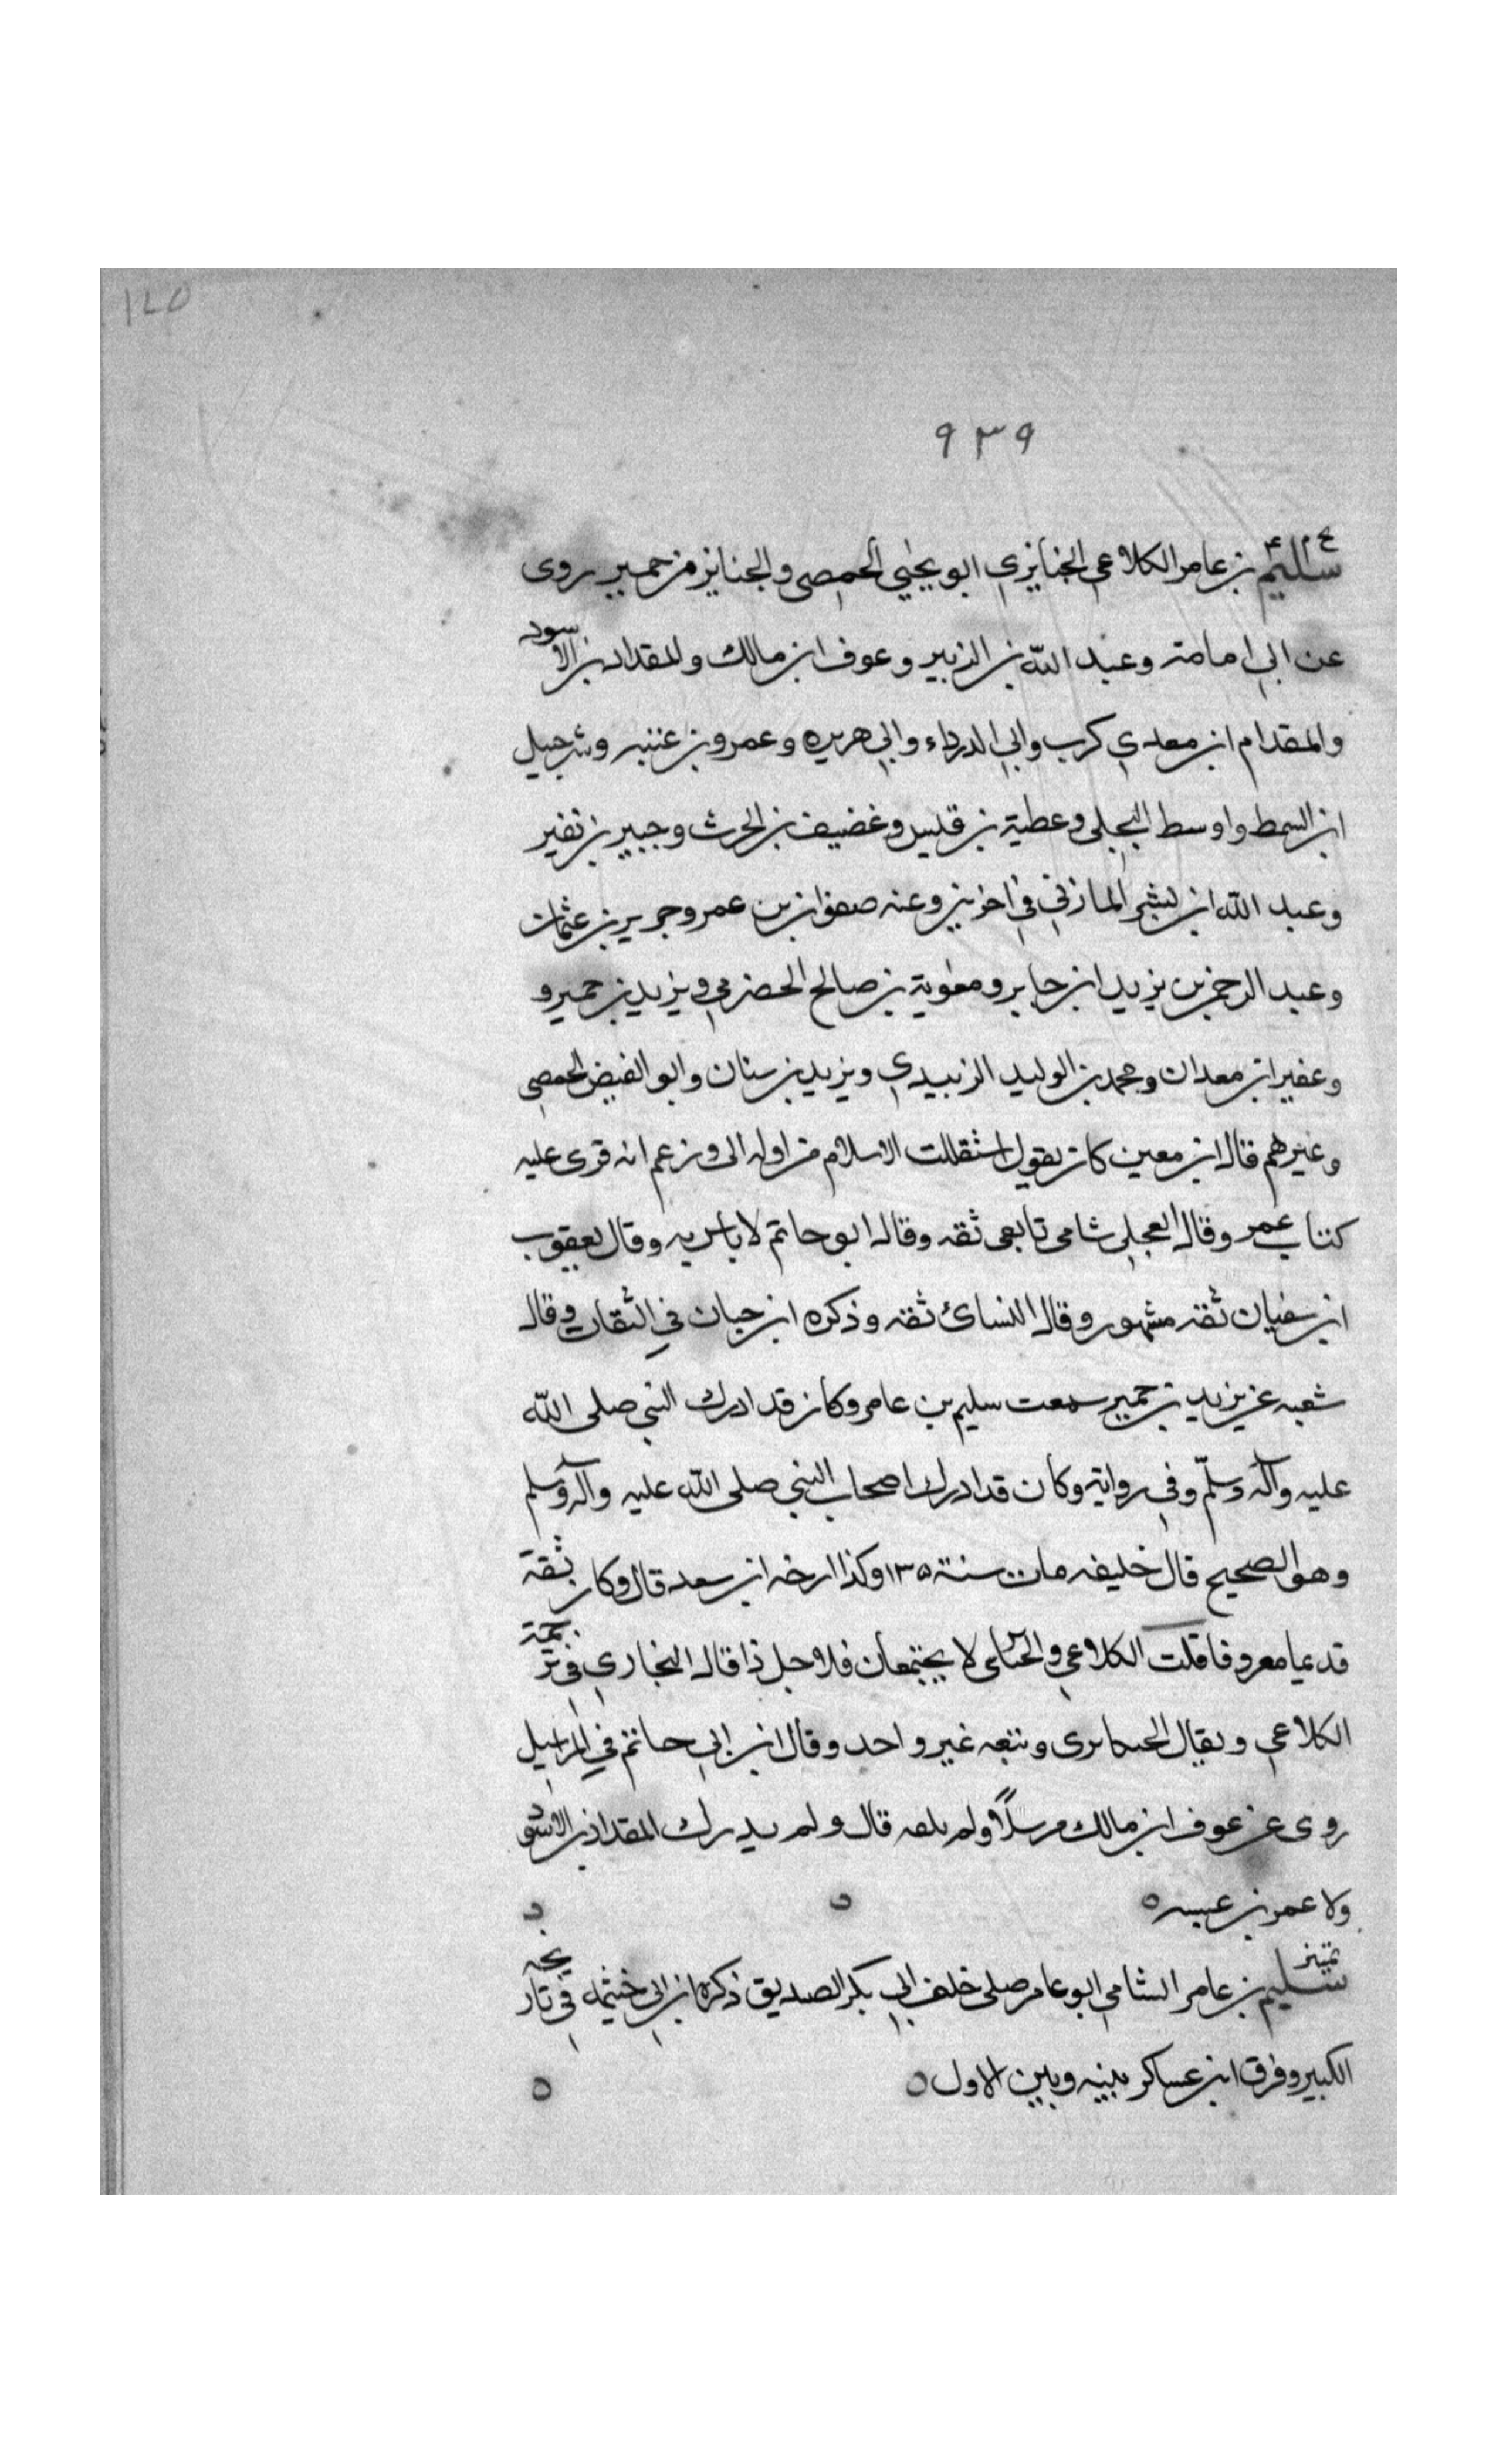 ١٢٥
٩٣٩
م ٤
سليم بن عامر الكلاعي الخبايزي ابو يحيي الحمصي والجنايز من حمير روى
عن ابي امامة وعبد الله بن الزبير وعوف ابن مالك والمقداد بن الاسود
والمقدام ابن معدي كرب وابي الدرداء وابي هريره وعمرو بن عنبسه وشرحبيل
ابن السمط واوسط البجلي وعطية بن قليس وغضيف بن الحرث وجبير بن نفير
وعبد الله ابن بشر المازني في اخرين وعنه صفوان بن عمرو جرير بن عثمان
وعبد الرحمن بن يزيد ابن جابر ومعوية بن صالح الحضرمي ويزيد بن حمير و
وعفير ابن معدان ومحمد بن الوليد الزبيدي ويزيد بن سنان وابو الفيض الحمصي
وغيرهم قال ابن معين كان يقول استقللت الاسلام من اوله الى وزعم انه قرى عليه
كتاب عمر وقال العجلي شامي تابعي ثقه وقال ابو حاتم لا باس به وقال يعقوب
ابن سفيان ثقة مشهور وقال النسائ ثقه وذكره ابن حبان في الثقات وقال
شعبه عن يزيد بن حمير سمعت سليم بن عامر وكان قد ادرك النبي صلى الله
عليه وآله وسلّم وفي رواية وكان قد ادرك اصحاب النبي صلى الله عليه وآله وسلم
وهو الصحيح قال خليفه مات سنة ١٣٥ وكذا ارخه ابن سعد قال وكان ثقة
قديما معروفا قلت الكلاعي لا يجتمعان فلاجل ذا قال البخاري في ترجمة
الكلاعي ويقال وتبعه غير واحد وقال ابن ابي حاتم في المراسيل
روى عن عوف ابن مالك مرسلاً ولم يلقه قال ولم يدرك المقداد بن الاسود
ولا عمر بن عبسه ٥
تمييز
سليم بن عامر الشامي ابو عامر صلى خلف ابي بكر الصديق ذكره ابن ابي خيثمه في تاريخه
الكبير وفرق ابن عساكر بينه وبين الاول ٥